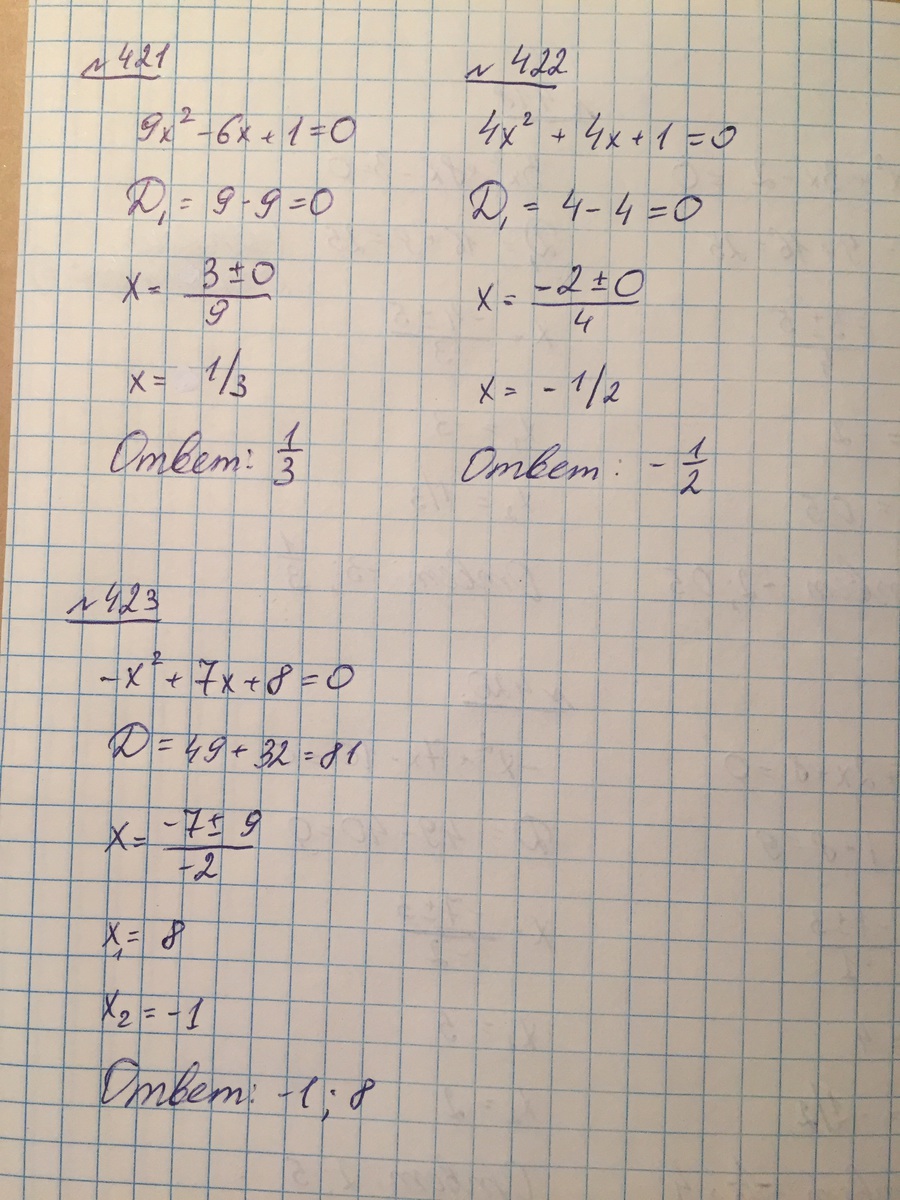 №421
9x² - 6x + 1 = 0
D₁ = 9 - 9 = 0
x = (3 ± 0)/9
x = 1/3
Ответ: 1/3
№ 422
4x² + 4x + 1 = 0
D₁ = 4 - 4 = 0
x = (-2 ± 0)/4
x = - 1/2
Ответ: - 1/2
№423
-x² + 7x + 8 = 0
D = 49 + 32 = 81
x = (-7 ± 9)/-2
x₁ = 8
x₂ = -1
Ответ: -1; 8